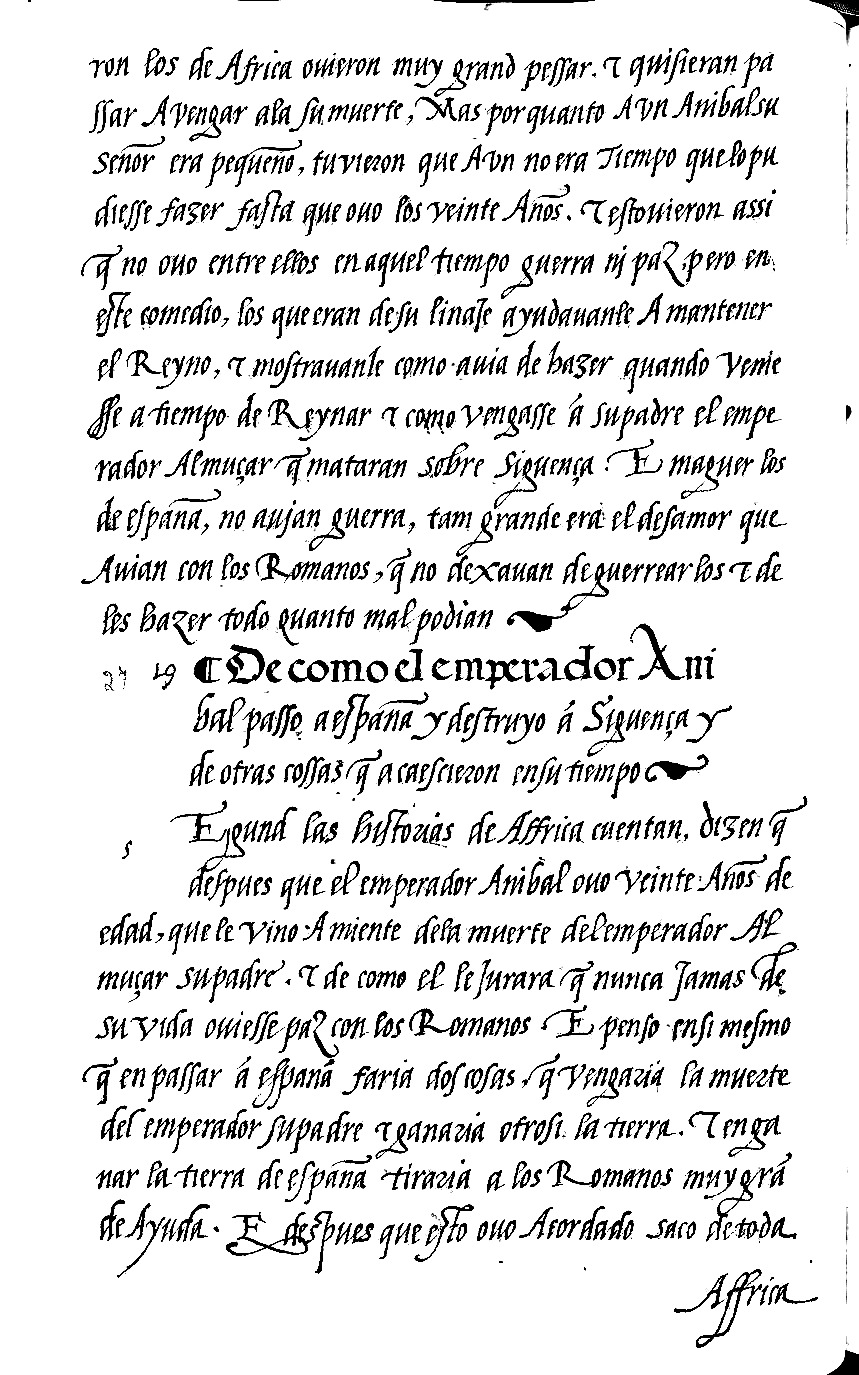 ron los de Africa ouieron muy grand pessar. τ quisieran pa
ssar A vengar ala su muerte, Mas por quanto Avn Anibal su
señor era pequeño, tuvieron que Avn no era Tiempo que lo pu
diesse fazer fasta que ouo los veinte Años. τ estouieron assi
q̃ no ouo entre ellos en aquel tiempo guerra nj paz, pero en
este comedio, los que eran de su linaje ayudauanle A mantener
el Reyno, τ mostrauanle como auia de hazer quando venie
sse a tiempo de Reynar τ como vengasse á su padre el empe
rador Almuçar q̃ mataran sobre Siguença. E maguer los
de españa, no aujan guerra, tam grande era el desamor que
Auian con los Romanos, q̃ no dexauan de guerrearlos τ de
les hazer todo quanto mal podian
27 19 ¶ De como el emperador Ani
bal passo a españa y destruyo á Siguença y
de otras cossas q̃ acaescieron en su tiempo
s Egund las historias de Affrica cuentan, dizen q̃
despues que el emperador Anibal ouo veinte Años de
edad, que le vino A miente dela muerte del emperador Al
muçar su padre. τ de como el le Jurara q̃ nunca Jamas de
su vida ouiesse paz con los Romanos E penso en si mesmo
q̃ en passar á españa faria dos cosas, q̃ vengaria la muerte
del emperador su padre τ ganaria otrosi la tierra. τ en ga
nar la tierra de españa tiraria a los Romanos muy grã
de Ayuda. E despues que esto ouo Acordado saco de toda
Affrica